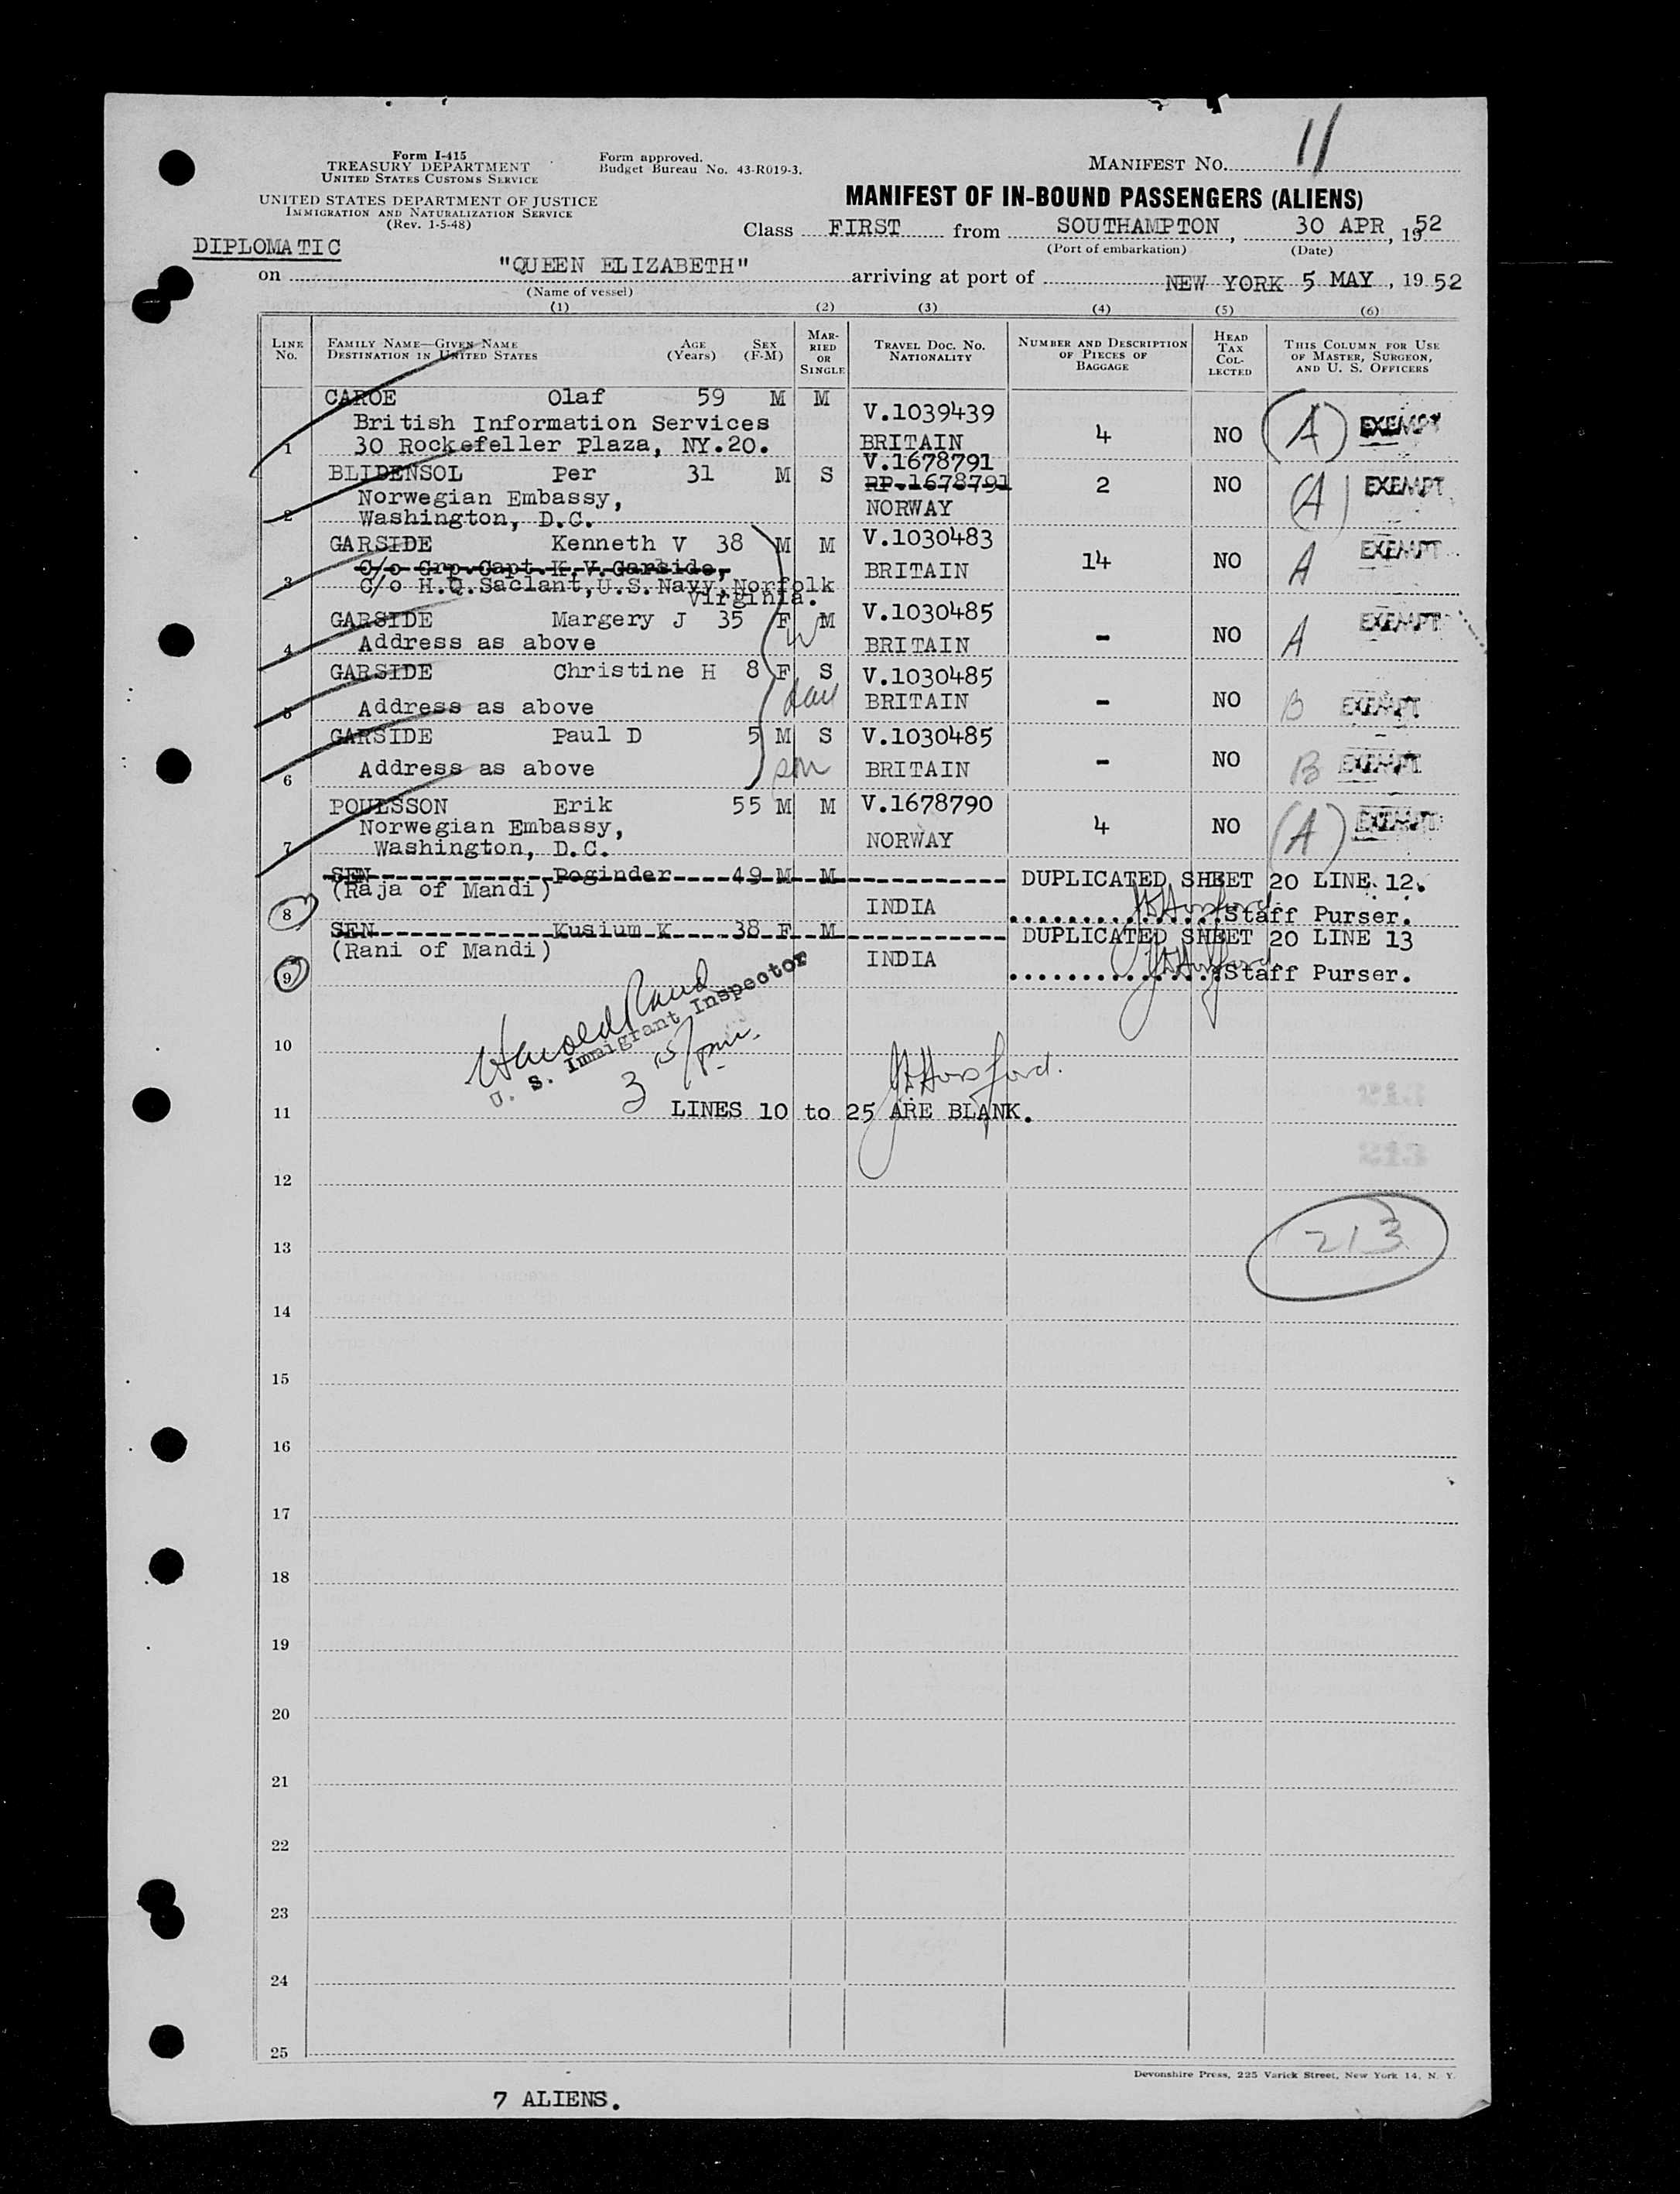 11
Form I-415
TREASURY DEPARTMENT
UNITED STATES CUSTOMS SERVICE
Form approved.
Budget Bureau No. 43-R019-3.
MANIFEST NO.
UNITED STATES DEPARTMENT OF JUSTICE
IMMIGRATION AND NATURALIZATION SERVICE
(Rev. 1-5-48)
MANIFEST OF IN-BOUND PASSENGERS (ALIENS)
Class FIRST from SOUTHAMPTON, 30 APR, 1952
(Port of embarkation) (Date)
DIPLOMATIC
on "QUEEN ELIZABETH" arriving at port of NEW YORK 5 MAY, 1952
(Name of vessel)
(1) (2) (3) (4) (5) (6)
LINE No. FAMILY NAME—GIVEN NAME DESTINATION IN UNITED STATES AGE (Years) SEX (F-M) MARRIED OR SINGLE TRAVEL DOC. NO. NATIONALITY NUMBER AND DESCRIPTION OF PIECES OF BAGGAGE HEAD TAX COLLECTED THIS COLUMN FOR USE OF MASTER, SURGEON, AND U. S. OFFICERS
CAROE Olaf 59 M M V.1039439
British Information Services
1 30 Rockefeller Plaza, NY.20. BRITAIN 4 NO (A) EXEMPT
BLIDENSOL Per 31 M S V.1678791
Norwegian Embassy, PP.1678791 2 NO (A) EXEMPT
2 Washington, D.C. NORWAY
GARSIDE Kenneth V 38 M M V.1030483
C/o Grp.Capt.K.V.Garside, 14 NO A EXEMPT
3 C/o H.Q.Saclant,U.S.Navy,Norfolk BRITAIN
Virginia.
GARSIDE Margery J 35 F M V.1030485
4 Address as above W BRITAIN - NO A EXEMPT
GARSIDE Christine H 8 F S V.1030485
5 Address as above dau BRITAIN - NO B EXEMPT
GARSIDE Paul D 5 M S V.1030485
6 Address as above son BRITAIN - NO B EXEMPT
POULSSON Erik 55 M M V.1678790
Norwegian Embassy, 4 NO (A) EXEMPT
7 Washington, D.C. NORWAY
SEN Poginder 49 M M DUPLICATED SHEET 20 LINE 12.
(Raja of Mandi)
8 INDIA Staff Purser.
SEN Kusium K 38 F M DUPLICATED SHEET 20 LINE 13
(Rani of Mandi)
9 INDIA Staff Purser.
Harold Rand
U. S. Immigrant Inspector
10
11 LINES 10 to 25 ARE BLANK.
12
213
13
14
15
16
17
18
19
20
21
22
23
24
25
Devonshire Press, 225 Varick Street, New York 14, N. Y.
7 ALIENS.